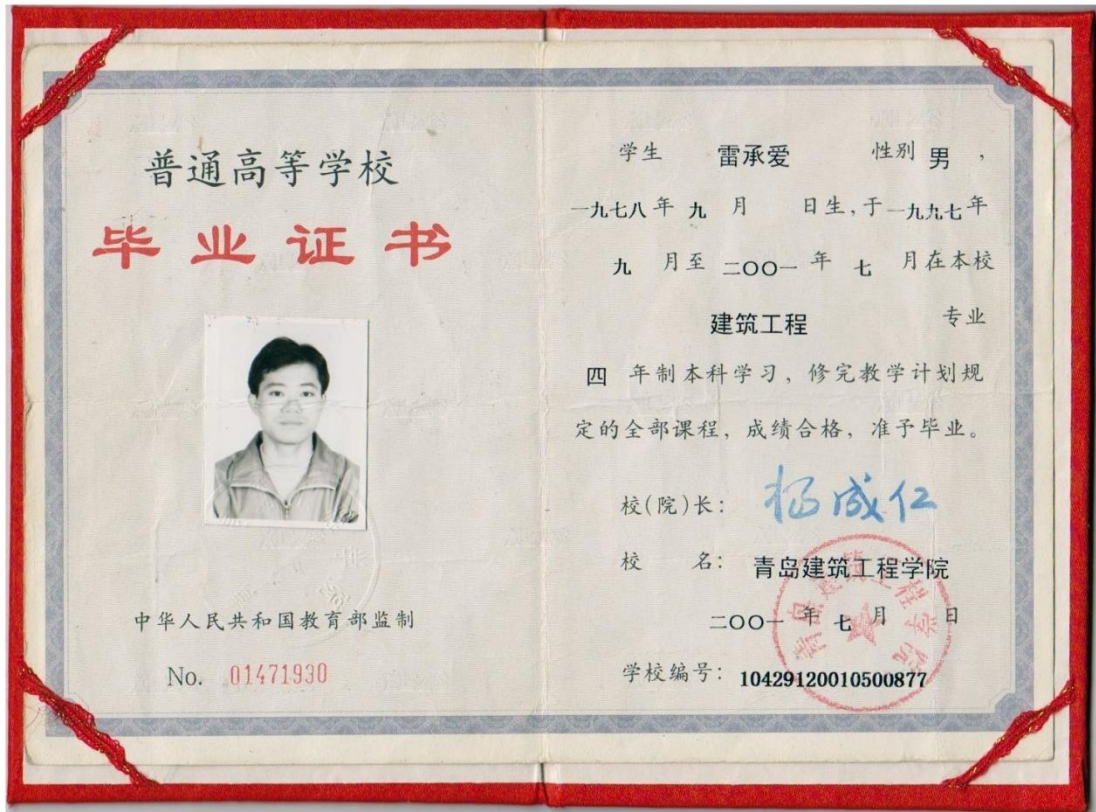 普通高等学校
毕业证书
中华人民共和国教育部监制
No. 01471930
学生 雷承爱 性别 男 ,
一九七八年 九 月 日生,于一九九七年
九 月至 二〇〇一 年 七 月在本校
建筑工程 专业
四 年制本科学习, 修完教学计划规
定的全部课程, 成绩合格, 准予毕业。
校(院)长: 杨成仁
校 名: 青岛建筑工程学院
二〇〇一 年 七 月 日
学校编号: 10429120010500877
青岛建筑工程学院